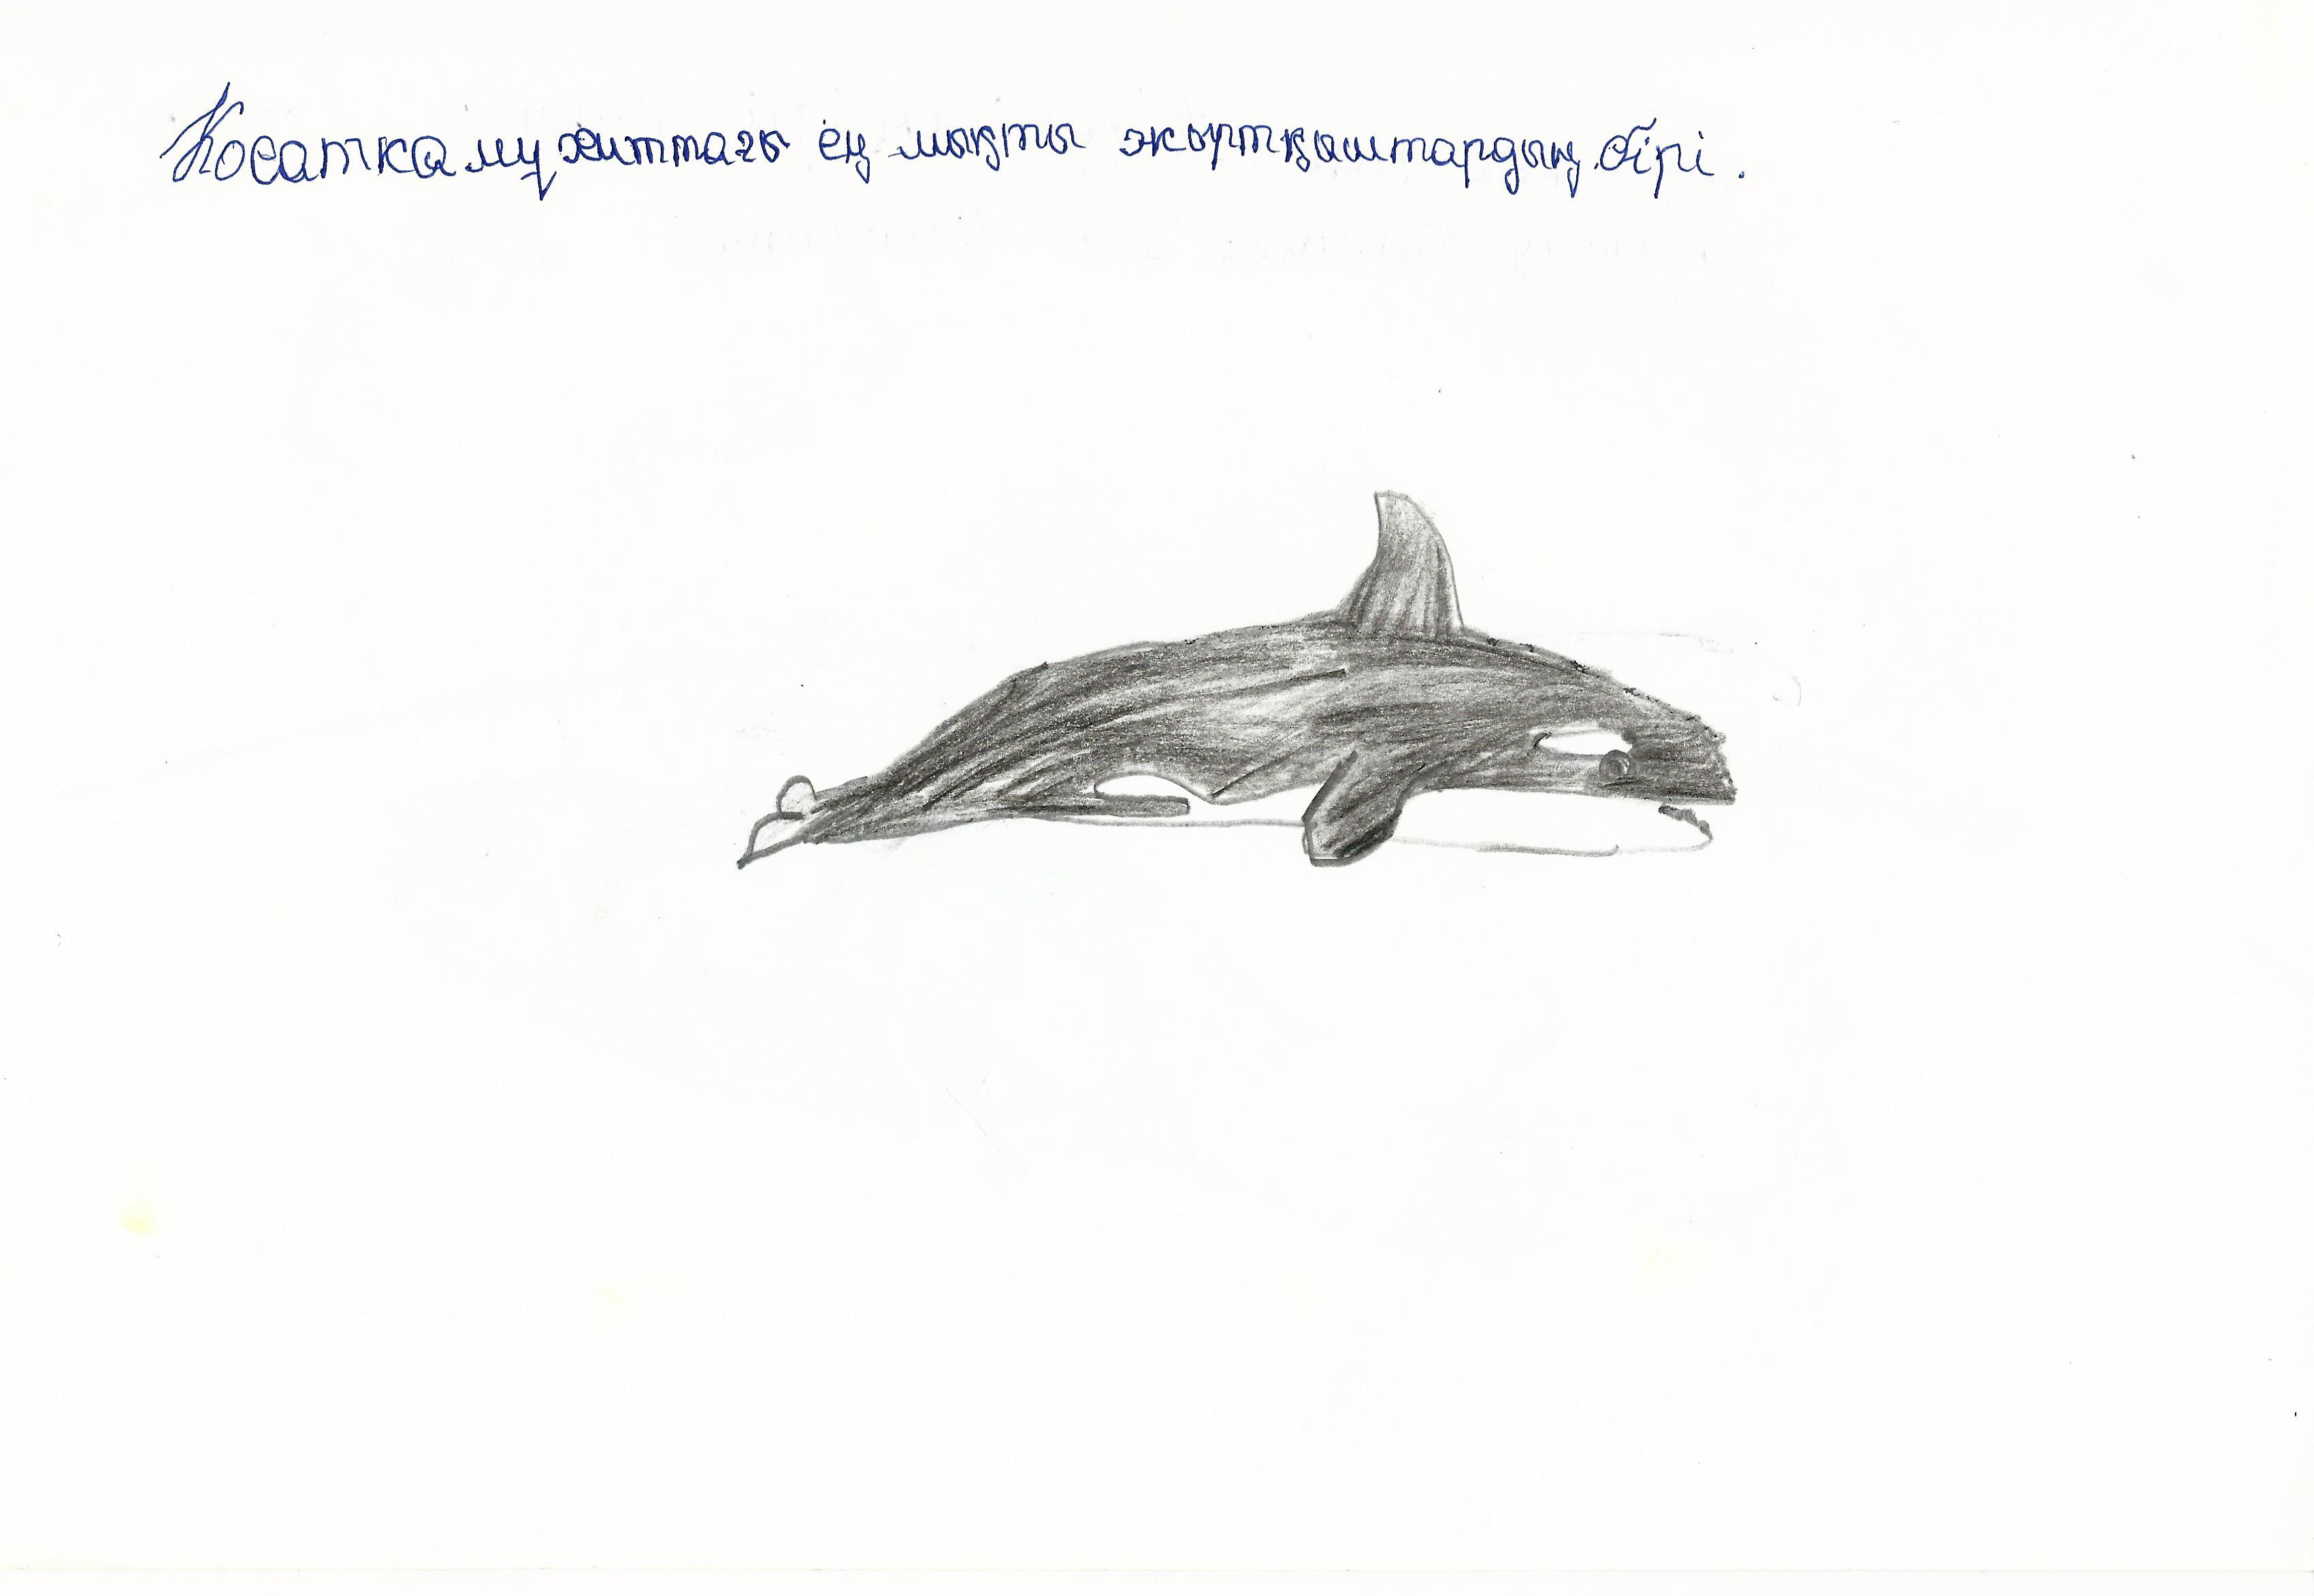 Косатка мұхиттағы ең мықты жыртқыштардың бірі.